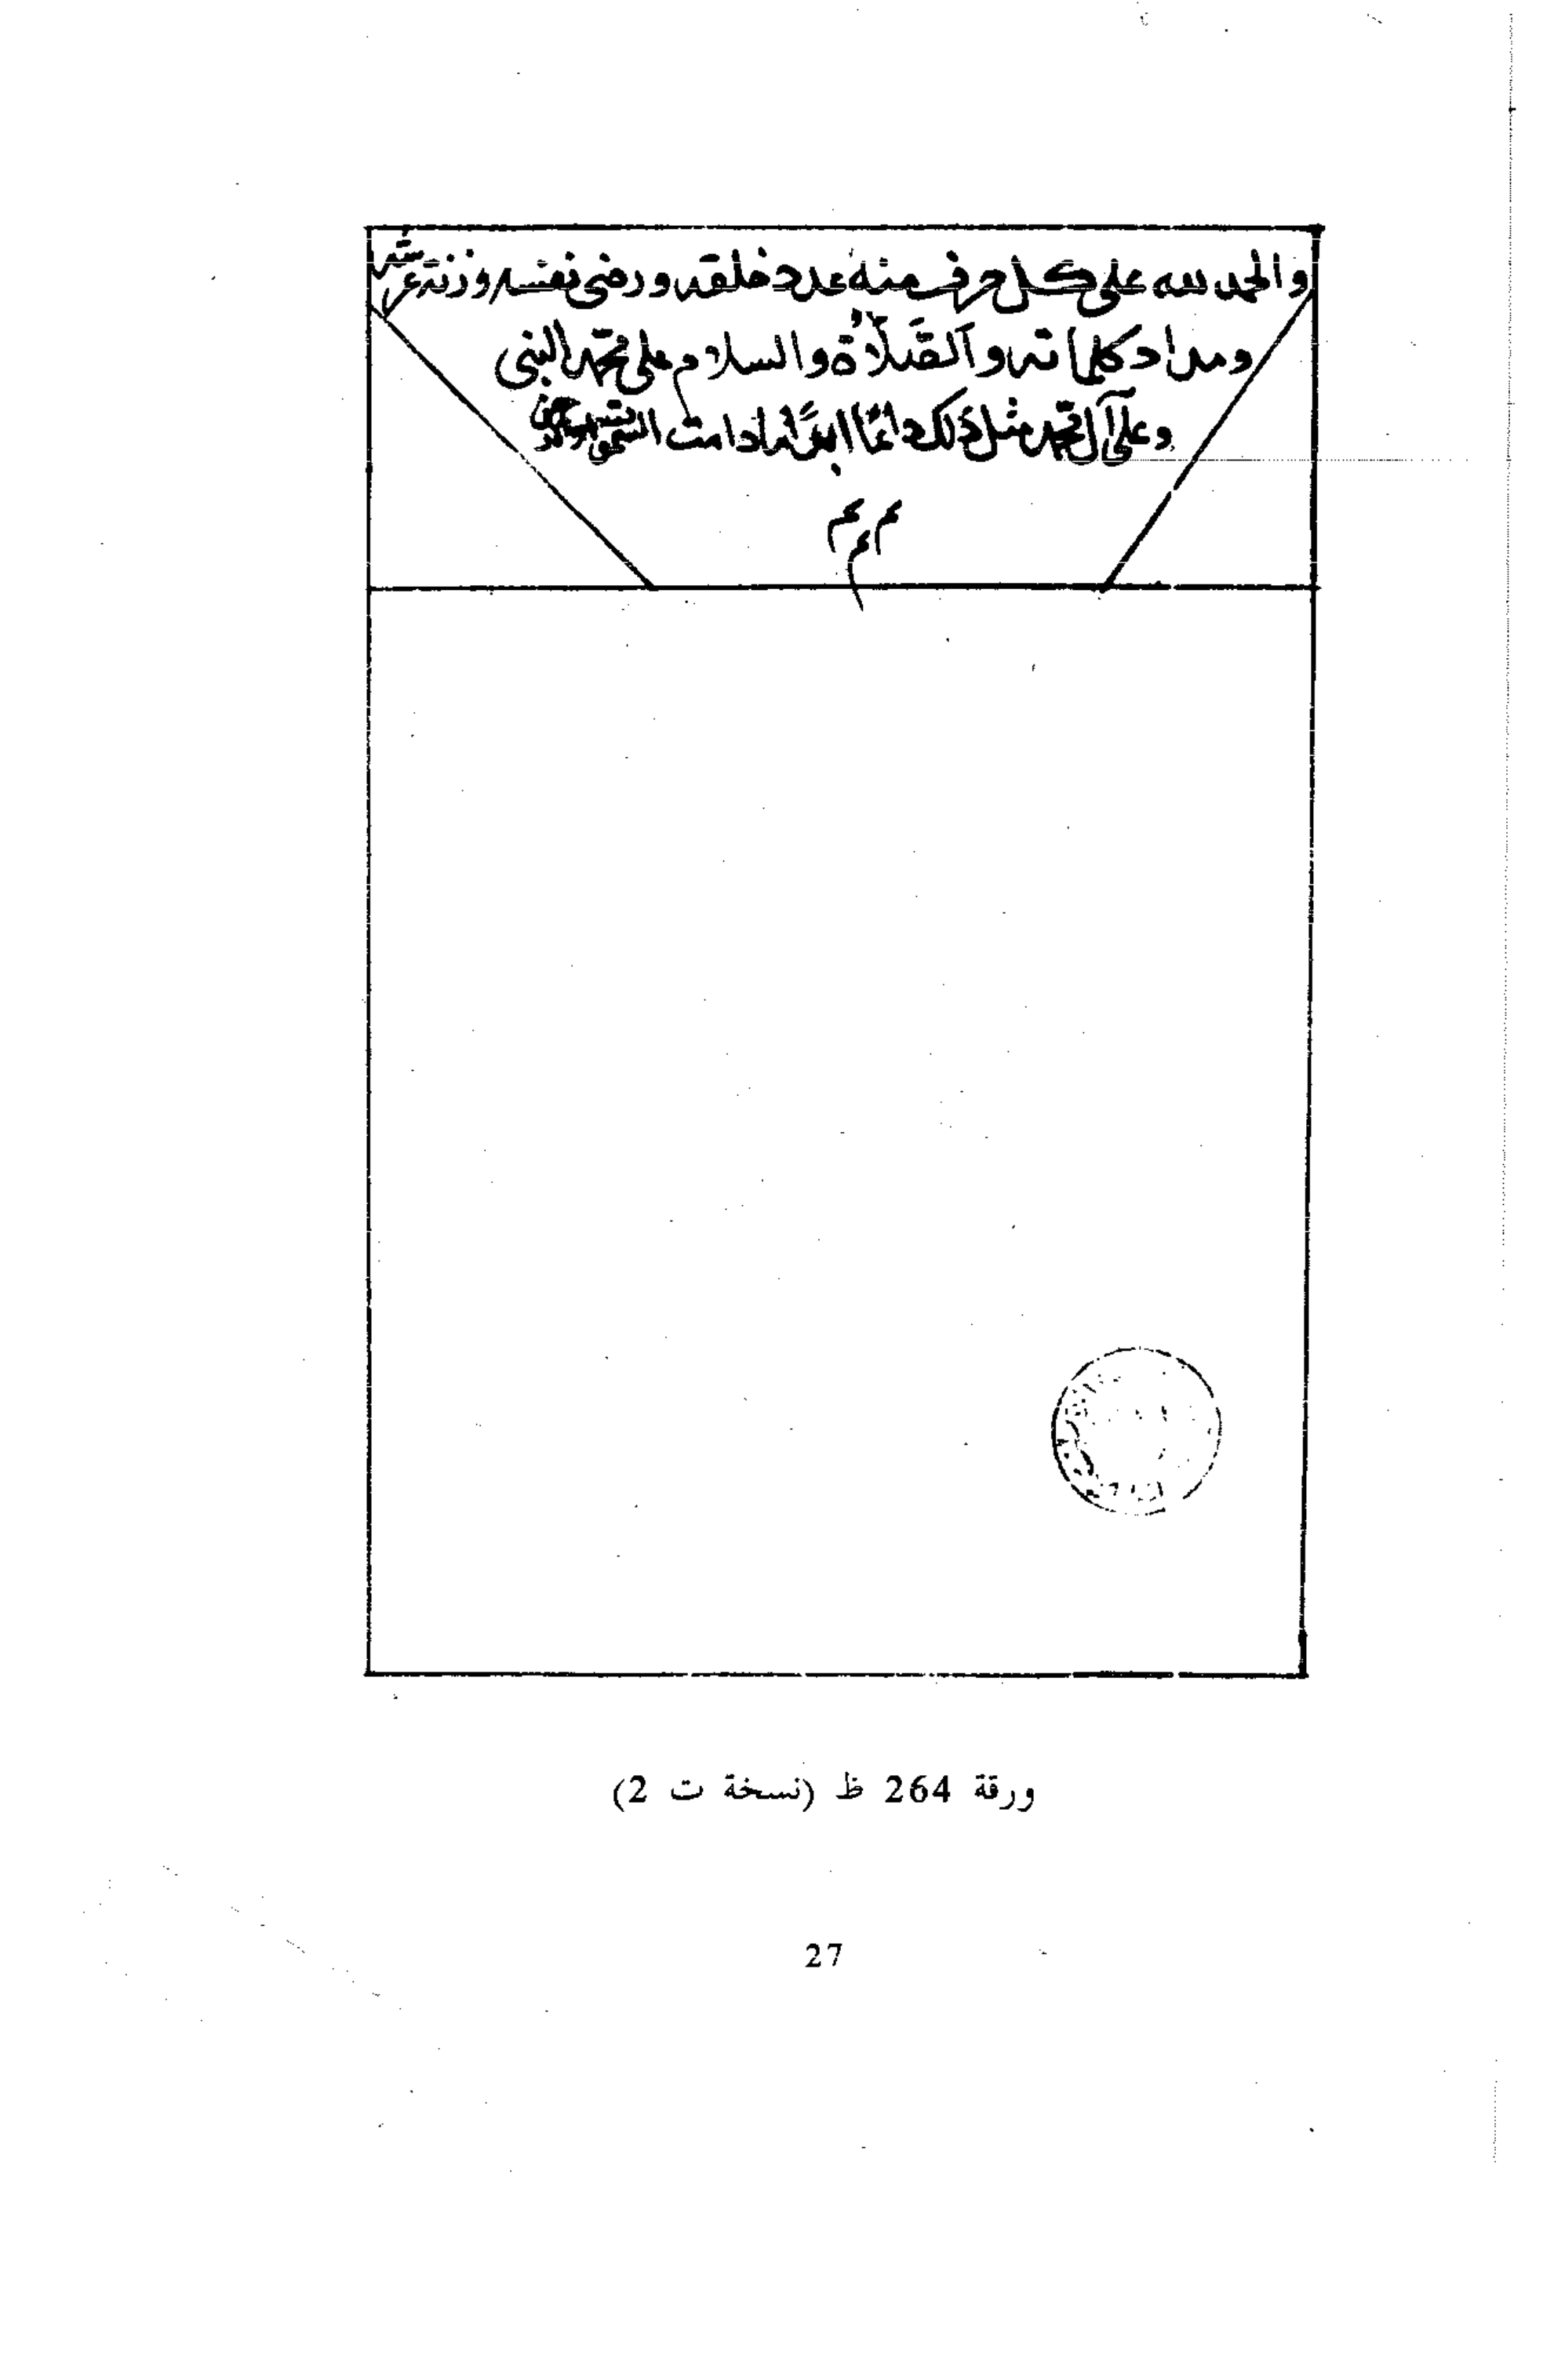 والحمد لله على كل حرف منه عدد خلقه ورضى نفسه وزنة عرشه
ومداد كلماته والصَّلَاة والسلام على محمد النبى
وعلى آل محمد مثل ذلك دائمًا ابدًا ما دامت
م م
م
ورقة 264 ظ (نسخة ت 2)
27